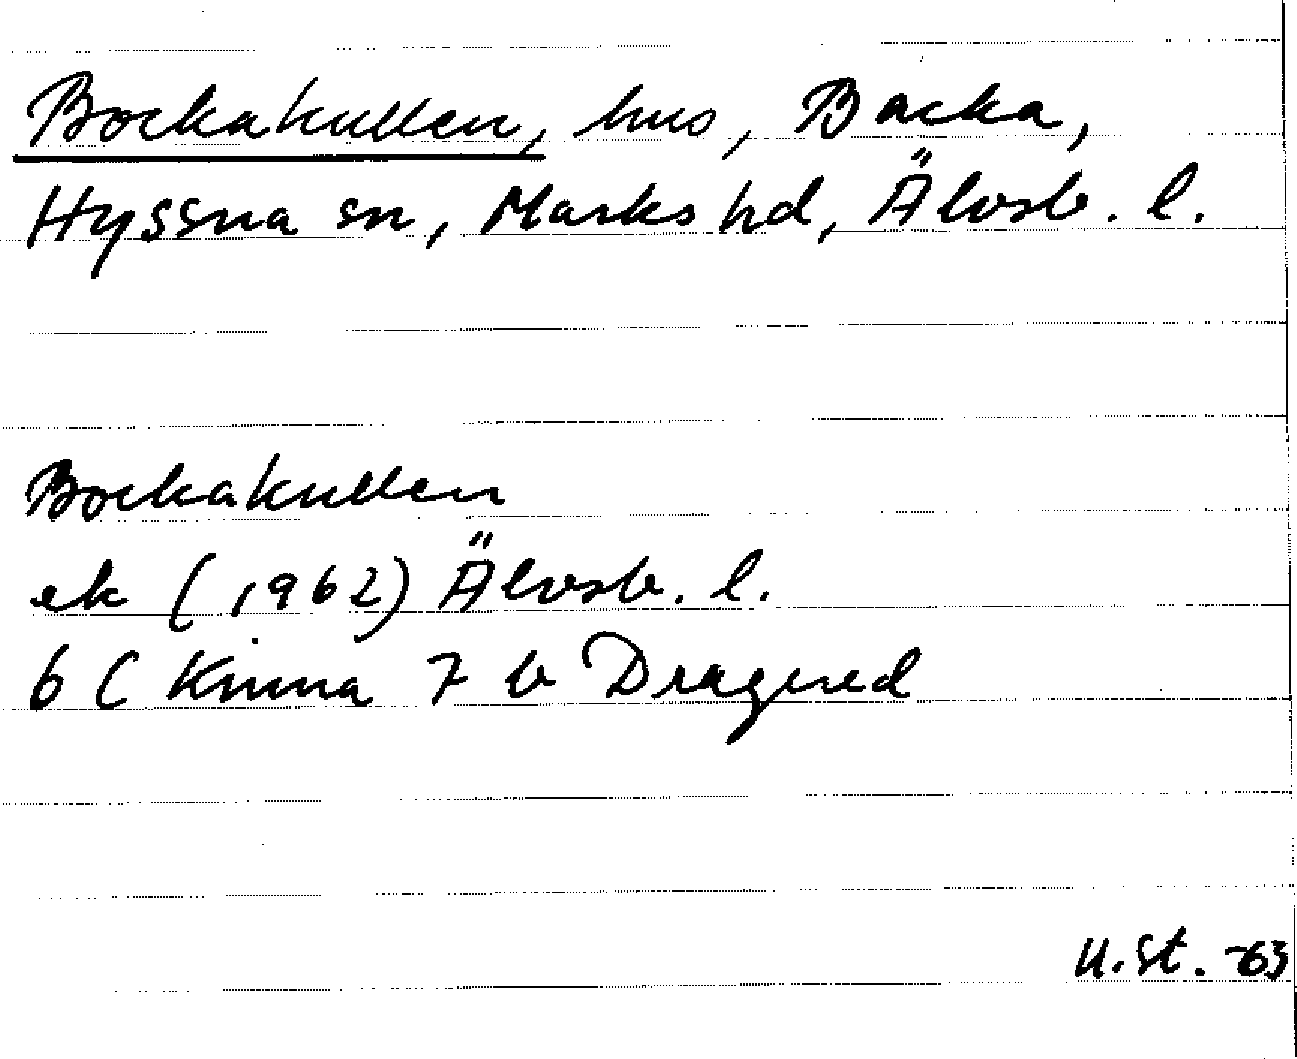 Bockakullen, hus, Backa,
Hyssna sn, Marks hd, Älvsb. l.
Bockakullen
ek (1962) Älvsb. l.
6 C Kinna 7 b Dragered
U.St. -63